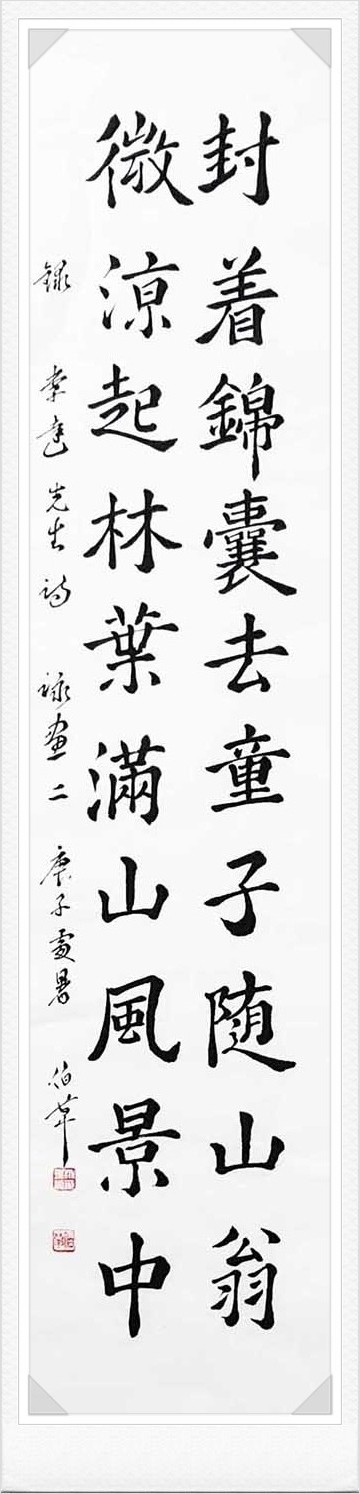 封着錦囊去童子随山翁
微涼起林葉滿山風景中
録 先生詩 詠畫二 庚子處暑 伯華